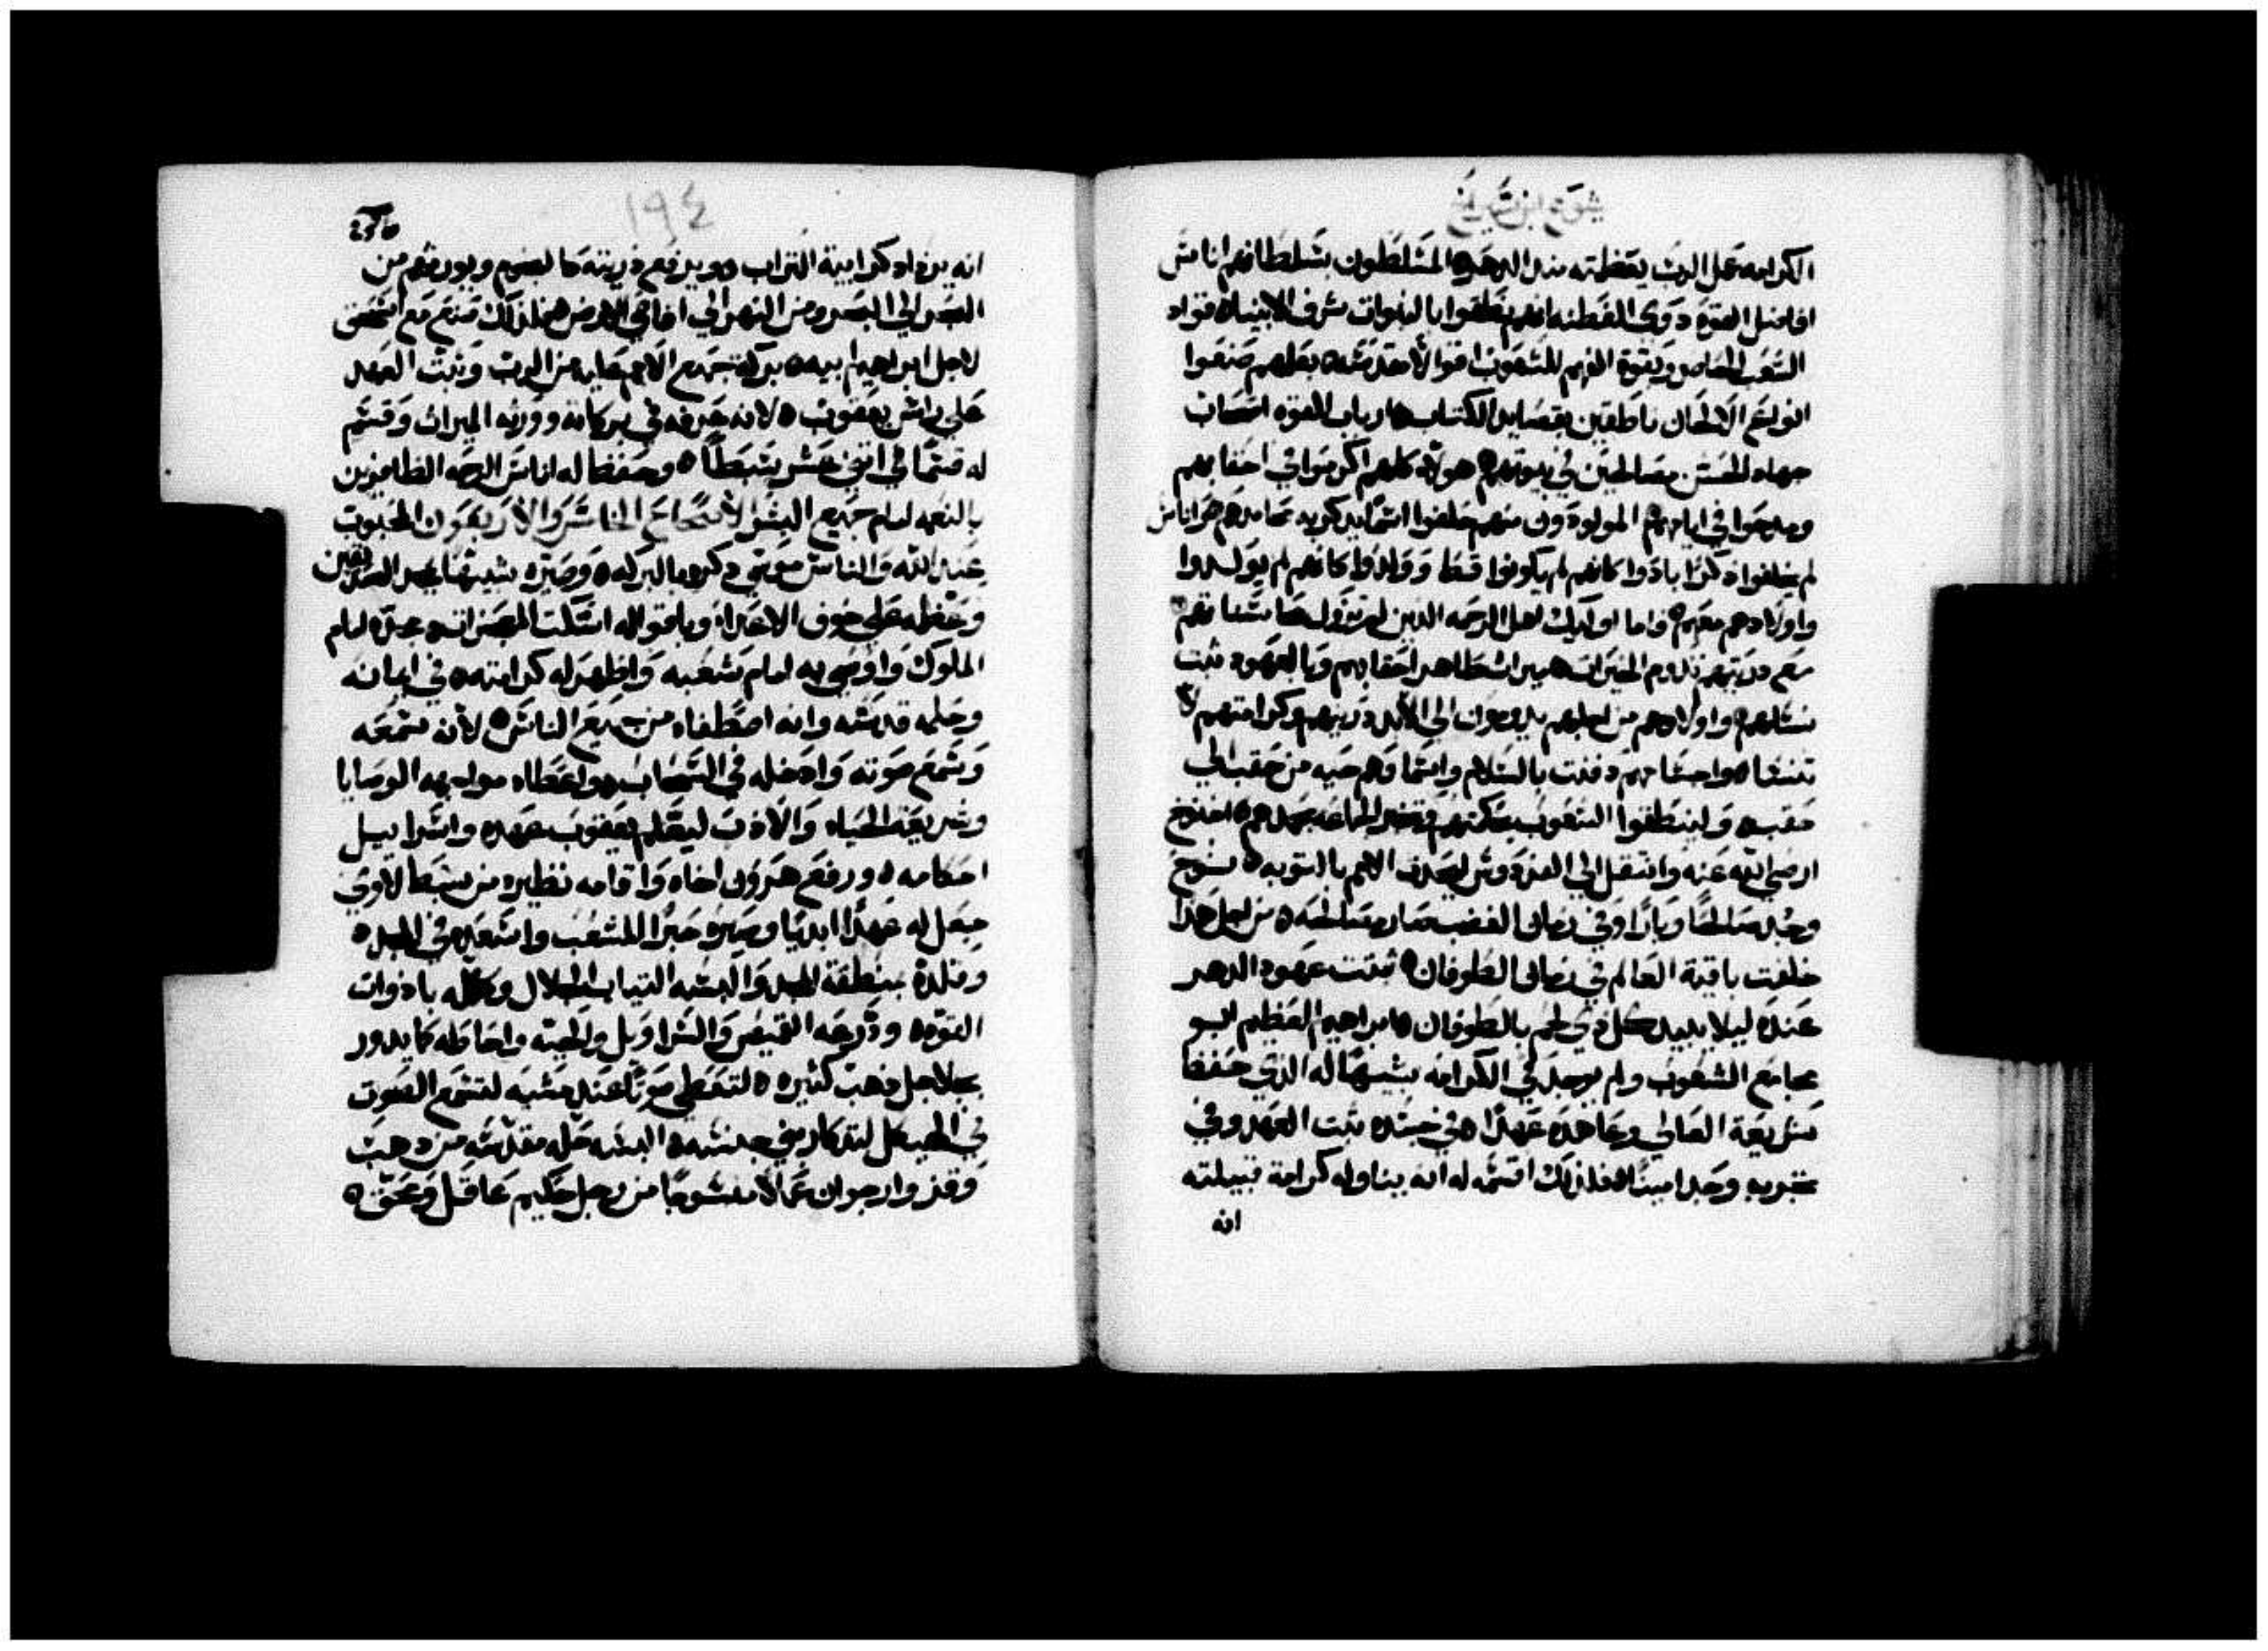 يشوع ابن سيراخ
الكرامه عمل الرب بعظمته منذ الدهر المتسلطون بسلطانهم اناس
افاضل القوه ذوي الفطنه انهم نطقوا بالنبوات شرف الانبياء قواد
الشعب الحاضر وبقوة الفهم للشعوب اقوالا مقدسه بعلمهم صنعوا
انواع الالحان ناطقين بقصايد الكتاب ارباب القوه اصحاب
جهاد الحسن مصالحين في بيوتهم هولاء كلهم اكرموا في احقابهم
ومدحوا في ايامهم المولودون منهم خلفوا اسما يذكر به محامدهم هم اناس
لم يخلفوا ذكرا بادوا كانهم لم يكونوا قط وولدوا كانهم لم يولدوا
واولادهم معهم واما اوليك اهل الرحمه الذين لم تزول حسناتهم
مع ذريتهم تدوم الخيرات ميراث طاهر احقابهم وبالعهود ثبت
نسلهم واولادهم من اجلهم يدومون الى الابد ذريتهم وكرامتهم لا
تنسا واجسادهم دفنت بالسلام واسماوهم حيه من حقب الي
حقب ولينطقوا الشعوب بحكمتهم وتخبر الجماعه بحمدهم اخنوخ
ارضي الله عنه وانتقل الي الفردوس ليعرف الامم بالتوبه نوح
وجد صالحا وبارا وفي زمان الغضب صار مصالحه من اجل هذا
خلفت باقية العالم في زمان الطوفان ثبتت عهود الدهر
عنده ليلا يبيد كل ذي لحم بالطوفان ابراهيم العظيم ابو
مجامع الشعوب ولم يوجد في الكرامه شبيها له الذي حفظ
شريعة العالي وعاهده عهدا في جسده ثبت العهد وفي
تجربه وجد امينا فلذلك اقسم له انه يناوله كرامة قبيلته
انه
١٩٤
انه يزداد كرابية التراب ويرفع ذريته كالنجوم ويورثهم من
البحر الي البحر ومن النهر الي اقاصي الارض كذلك صنع مع اسحق
لاجل ابراهيم ابيه بركة جميع الامم عليه من الرب وثبت العهد
على راس يعقوب لانه عرفه في بركاته وورثه الميراث وقسم
له قسما في اثني عشر سبطا وحفظ له اناس الرحمه الظافرين
بالنعمه امام جميع البشر الاصحاح الخامس والاربعون المحبوب
عند الله والناس موسي ذكره بالبركه وصيره شبيها بمجد القديسين
وعظمه على خوف الاعداء وباقواله اسكت المعجزات مجده امام
الملوك واوصي به امام شعبه واظهر له كرامته في ايمانه
وحلمه قدسه وانه اصطفاه من جميع الناس لانه سمعه
وسمع صوته وادخله في السحاب واعطاه مواجهه الوصايا
وشريعة الحياه والادب ليعلم يعقوب عهده واسراييل
احكامه ورفع هرون اخاه واقامه نظيره من سبط لاوي
جعل له عهدا ابديا وصيره حبرا للشعب واسعده في المجد
وقلده بمنطقة المجد والبسه الثياب الجلال وكلله باذوات
القوه ودرعه القميص والسراويل والجبه واحاطه كما يدور
بجلاجل ذهب كثيره لتعطي صوتا عند مشيه لتسمع الصوت
في الهيكل لتذكار بني جنسه البسه حله مقدسه من دهب
وقز وارجوان عملا منسوجا من رجل حكيم عاقل وحق